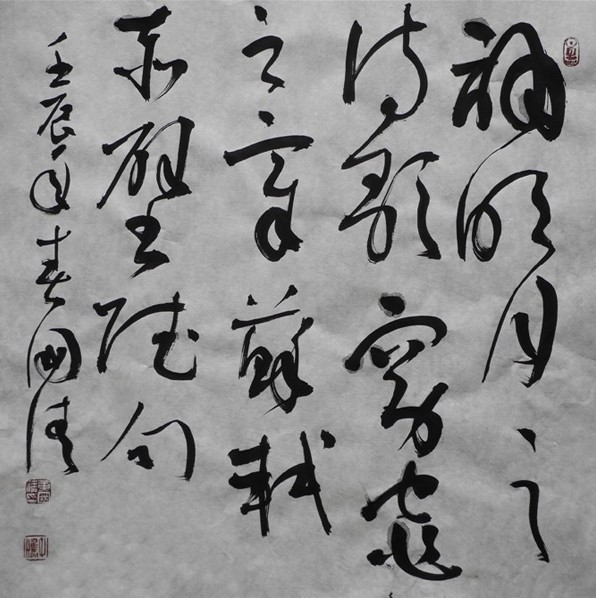 誦明月之
詩歌窈窕
之章蘇軾
赤壁賦句
壬辰年春国清